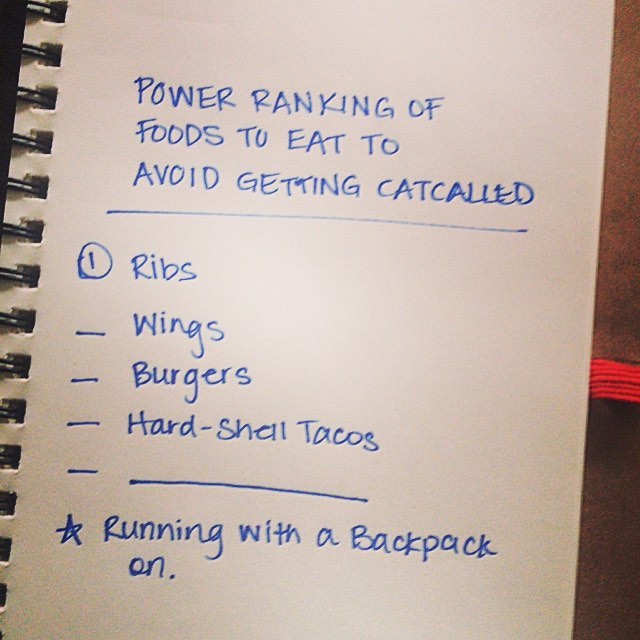 POWER RANKING OF
FOODS TO EAT TO
AVOID GETTING CATCALLED
① Ribs
— Wings
— Burgers
— Hard-Shell Tacos
— ________
☆ Running with a Backpack
on.